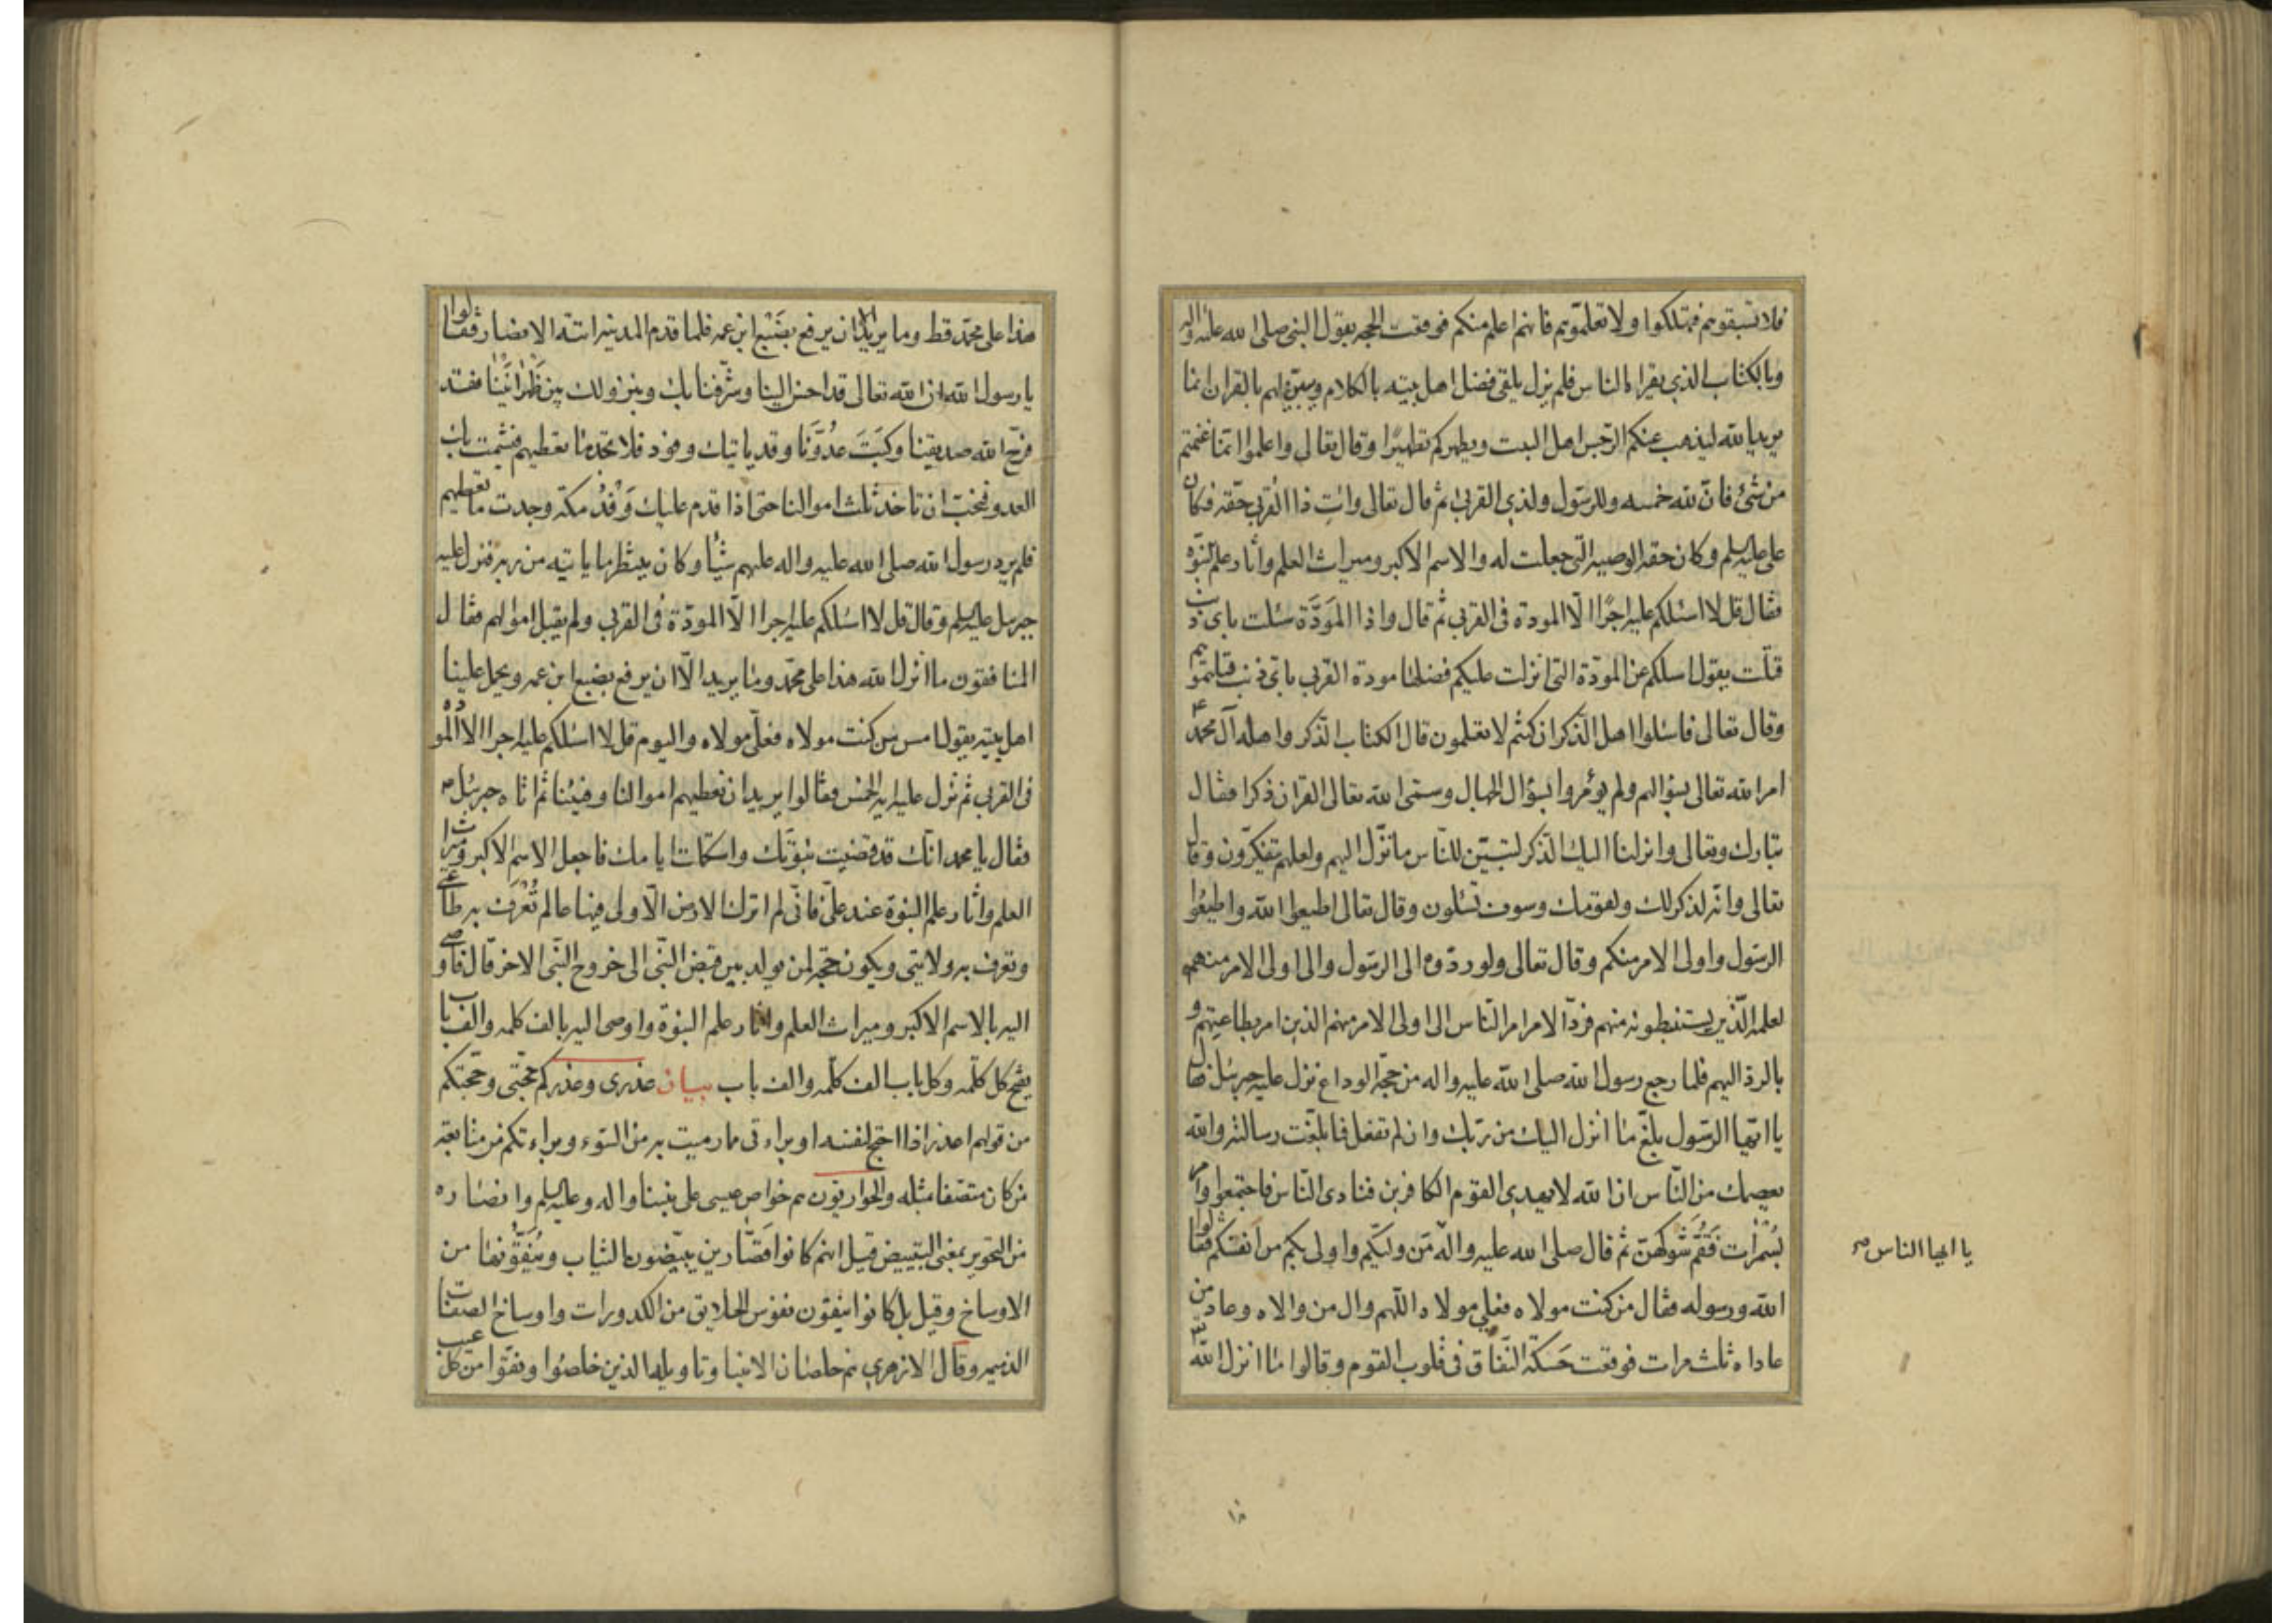 فلا تسبقوهم فتهلكوا ولا تعلموهم فانهم اعلم منكم فوقعت الحجه بقول النبی صلی الله علیه واله
وبالکتاب الذی یقراه الناس فلم یزل یلقی فضل اهل بیته بالکلام ویبیّن لهم بالقران انما
یرید الله لیذهب عنکم الرّجس اهل البیت ویطهرکم تطهیرًا وقال تعالی واعلموا انّما غنمتم
من شیٔ فانّ لله خمسه وللرّسول ولذی القربی ثم قال تعالی واتِ ذا القربی حقّه فکان
علی علیه السلم وکان حقه الوصیه الّتی جعلت له والاسم الاکبر ومیراث العلم واثار علم النبوّة
فقال قل لا اسئلکم علیه اجرًا الّا المودة فی القربی ثم قال واذا المَوَدَّة سئلت بای ذنب
قتلت یقول اسلکم عن المودّة التی انزلت علیکم فضلها مودة القربی بایّ ذنب قتلتموهم
وقال تعالی فاسئلوا اهل الذکر ان کنتم لا تعلمون قال الکتاب الذّکر واهله آل محمد ع
امر الله تعالی بسؤالهم ولم یؤمروا بسؤال الجهال وسمّی الله تعالی القران ذکرا فقال
تبارک وتعالی وانزلنا الیک الذّکر لتبیّن للنّاس ما نزّل الیهم ولعلهم یتفکّرون وقال
تعالی وانّه لذکر لک ولقومک وسوف تسئلون وقال تعالی اطیعوا الله واطیعُوا
الرّسول واولی الامر منکم وقال تعالی ولو ردّوه الی الرّسول والی اولی الامر منهم
لعلمه الّذین یستنبطونه منهم فردّ الامر امر النّاس الی اولی الامر منهم الذین امر بطاعتهم و
بالردّ الیهم فلما رجع رسول الله صلی الله علیه واله من حجّة الوداع نزل علیه جبرئیل فقال
یا ایّها الرّسول بلّغ ما انزل الیک من ربّک وان لم تفعل فما بلّغت رسالته والله
یعصمک من النّاس ان الله لا یهدی القوم الکافرین فنادی النّاس فاجتمعوا وامر
بسُمَرات فَقُمَّ شَوکهن ثم قال صلی الله علیه واله مَن ولیّکم واولی بکم من انفسکم فقالوا
یا ایها الناس صح
الله ورسوله فقال من کنت مولاه فعلی مولاه اللّهم وال من والاه وعاد من
عاداه ثلث مرات فوقعت حَسَکة النّفاق فی قلوب القوم وقالوا ما انزل الله
۱۸
هذا علی محمّد قط وما یرید الا ان یرفع بضَبْع ابن عمه فلما قدم المدینه اتته الانصار فقالوا
یا رسول الله ان الله تعالی قد احسن الینا وشرّفنا بک وبنزولک بین ظَهْرانَیْنا فقد
فرّح الله صدیقنا وکَبَتَ عدُوّنَا وقد یاتیک وفود فلا تجد ما تعطیهم فیشمت بک
العدو فنحبّ ان تاخذ ثلث اموالنا حتی اذا قدم علیک وَفْدُ مکة وجدت ما تعطیهم
فلم یرد رسول الله صلی الله علیه واله علیهم شیٔا وکان ینتظر ما یاتیه من ربه فنزل علیه
جبرئیل علیه السلم وقال قل لا اسئلکم علیه اجرا الّا المودّة فی القربی ولم یقبل اموالهم فقال
المنافقون ما انزل الله هذا علی محمّد وما یرید الّا ان یرفع بضبع ابن عمه ویحمل علینا
اهل بیته یقول امس مَن کنت مولاه فعلیّ مولاه والیوم قل لا اسئلکم علیه اجرا الا المودة
فی القربی ثم نزل علیه ایه الخمس فقالوا یرید ان نعطیهم اموالنا وفیئنا ثم اتاه جبرئیل
فقال یا محمد انّک قد قضیت نبوّتک واستکملت ایامک فاجعل الاسم الاکبر ومیراث
العلم واثار علم النبوة عند علیّ فانّی لم اترک الارض الّا ولی فیها عالم تُعْرَف به طاعتی
وتعرف به ولایتی ویکون حجّة لمن یولد بین قبض النّبی الی خروج النّبی الاخر قال فاوصی
الیه بالاسم الاکبر ومیراث العلم واثار علم النبوّة واوصی الیه بالف کلمه والف باب
یفتح کل کلمه وکل باب الف کلمه والف باب بیان عذری وعذرکم حجّتی وحجّتکم
من قولهم اعذر اذا احتج لنفسه او براءتی مما رمیت به من السّوء وبراءتکم من متابعة
من کان متصّفا بمثله والحواریّون هم خواص عیسی علی نبینا واله وعلیه السلم وانصاره
من التحویر بمعنی التبییض قیل انهم کانوا قصّارین یبیّضون الثیاب ویُنَقُّونها من
الاوساخ وقیل بل کانوا ینقون نفوس الخلایق من الکدورات واوساخ الصفات
الذمیمه وقال الازهری هم خلصان الانبیا وتاویله الذین خلصُوا ونقّوا من کل عیب